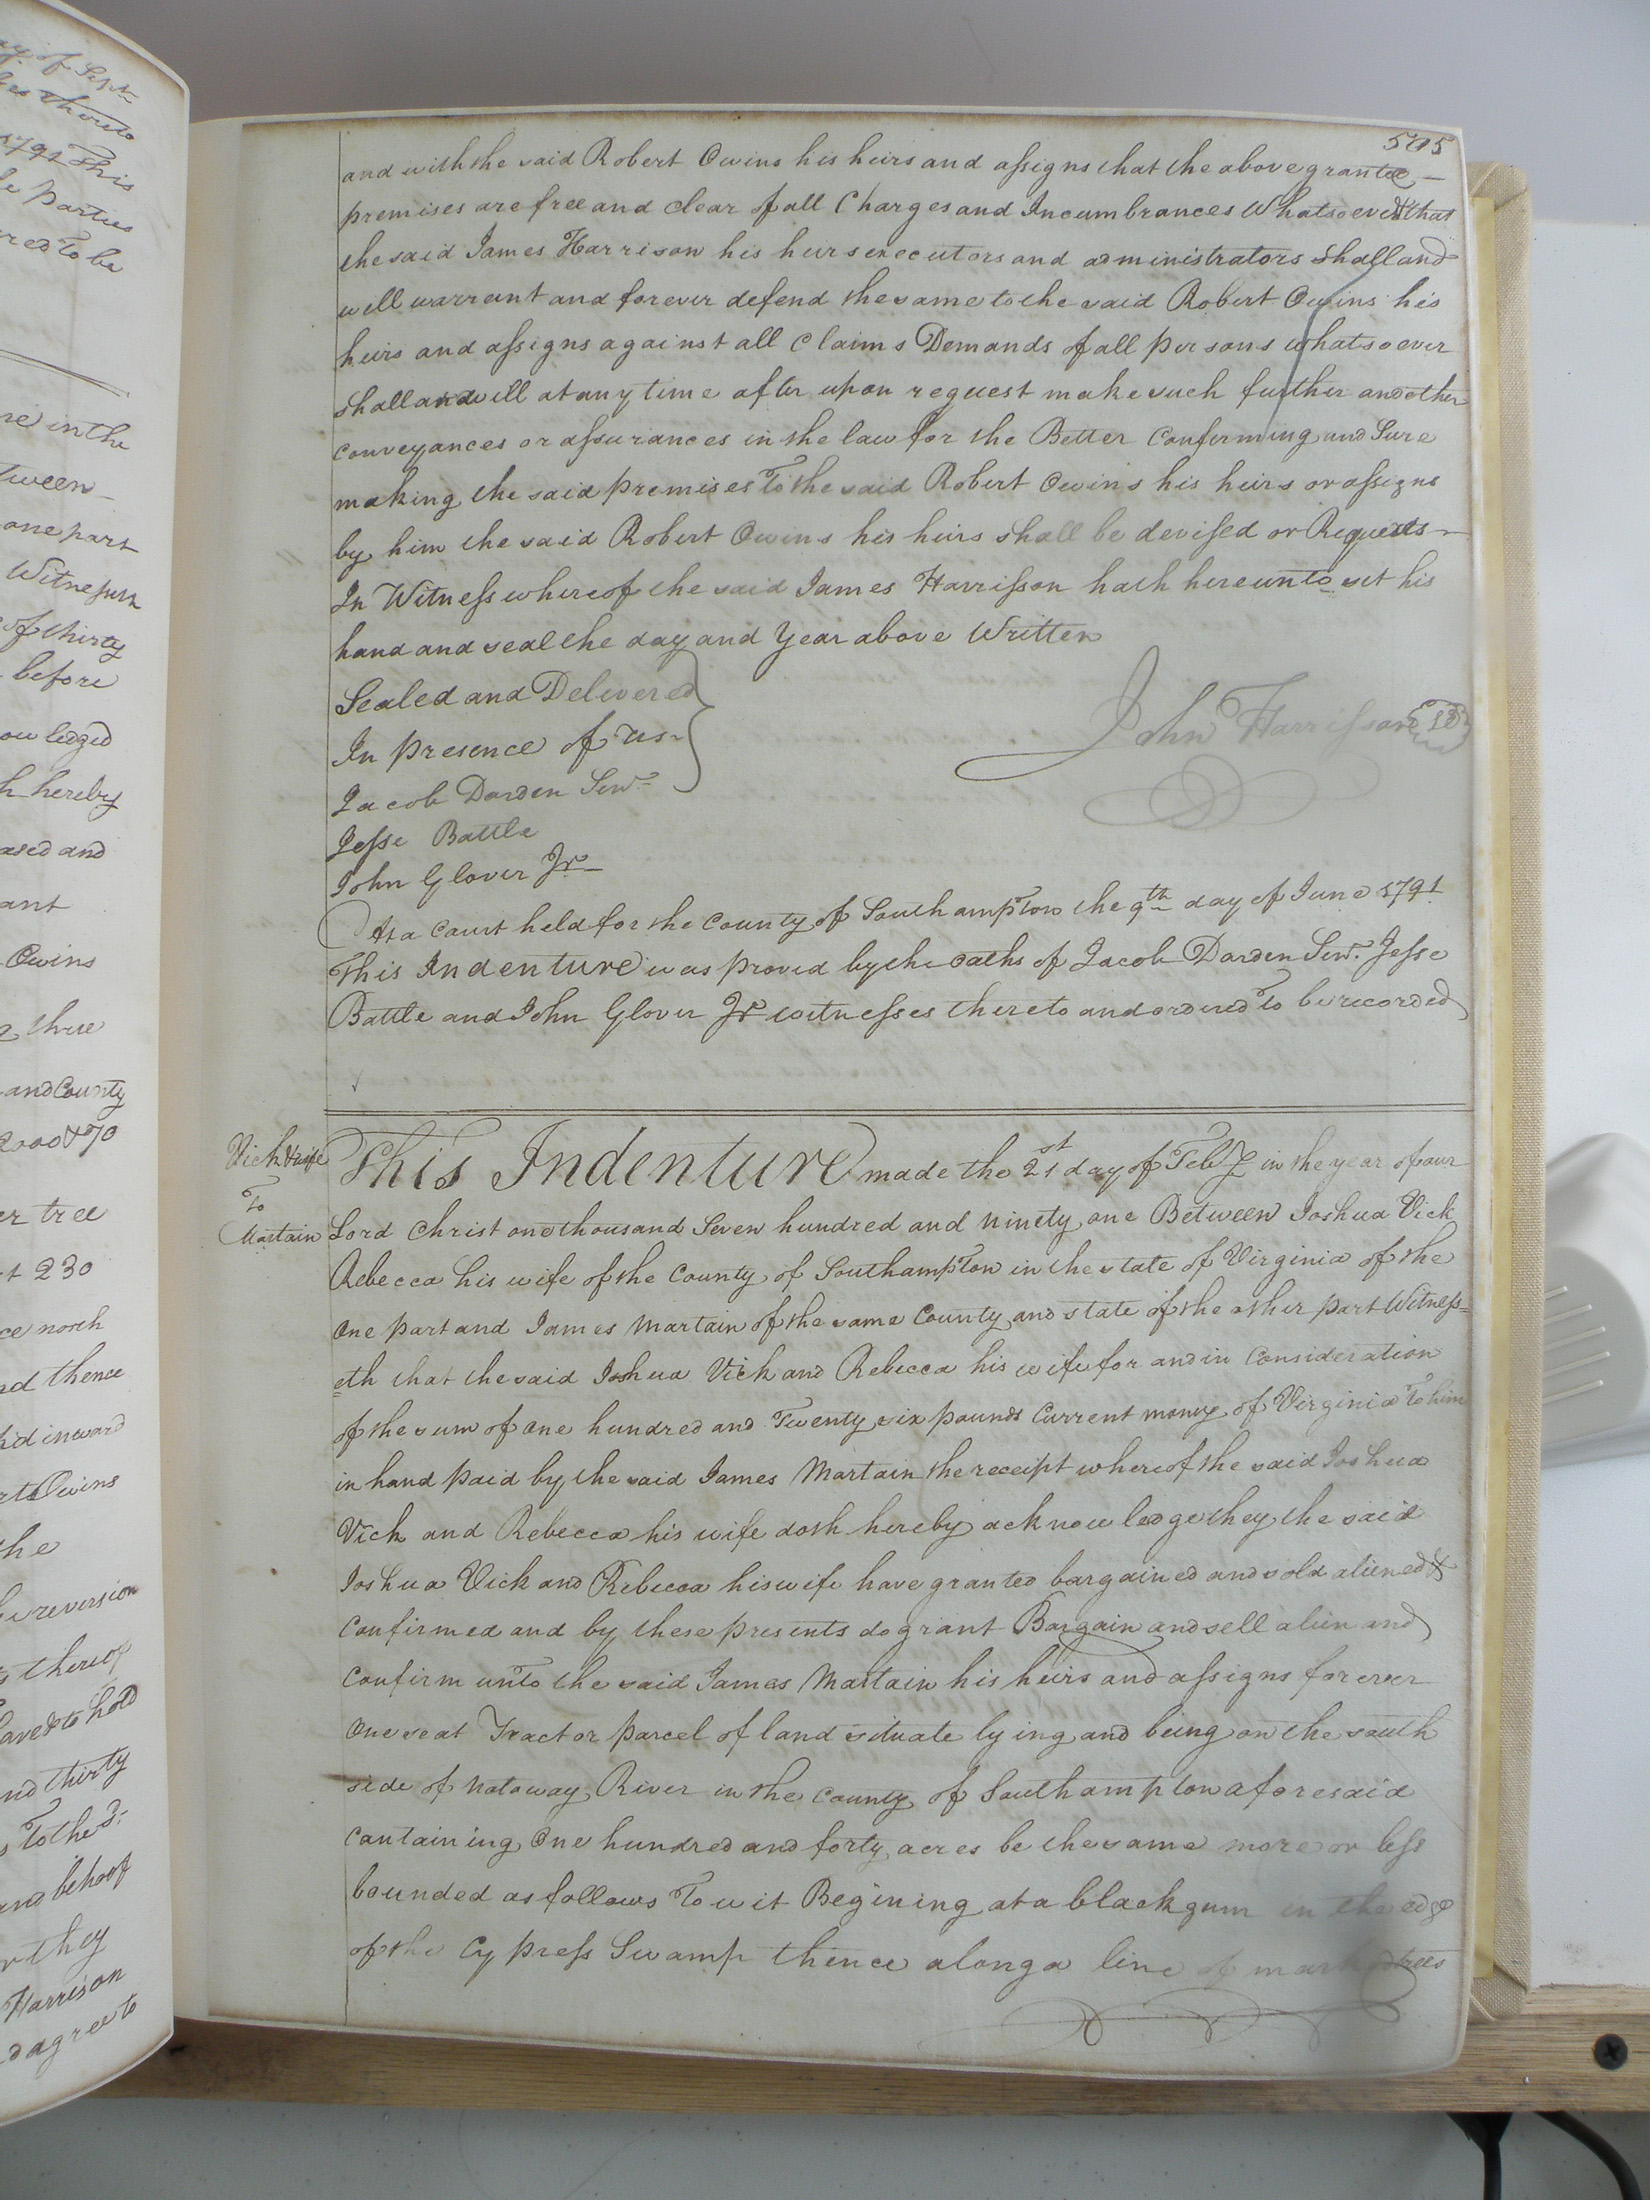 ay of Sept
es thereto
1791 This
le parties
red to be
re in the
tween
one part
Witnesseth
of thirty
before
ow ledged
h hereby
ased and
ant
Owins
g three
and County
2000 & 70
er tree
t 230
ce north
nd thence
k'd inward
rt Owins
the
he reversion
s thereof
have & to hold
and thirty
s to the sd.
and behoof
or they
Harrison
d agree to
505
and with the said Robert Owins his heirs and assigns that the above grantee
premises are free and clear of all Charges and Incumbrances Whatsoever & that
the said James Harrison his heirs executors and administrators shall and
will warrant and forever defend the same to the said Robert Owins his
heirs and assigns against all Claims Demands of all persons whatsoever
shall and will at any time after upon request make such further and other
conveyances or assurances in the law for the Better Confirming and Sure
making the said premises To the said Robert Owins his heirs or assigns
by him the said Robert Owins his heirs shall be devised or Requests
In Witness whereof the said James Harrisson hath hereunto set his
hand and seal the day and Year above Written
Sealed and Delivered
In presence of us
John Harrisson LS
Jacob Darden Senr
Jesse Battle
John Glover Jr
At a Court held for the County of Southampton the 9th day of June 1791
This Indenture was proved by the oaths of Jacob Darden Senr. Jesse
Battle and John Glover Jr witnesses thereto and ordered To be recorded
Vick & wife
To
Martain
This Indenture made the 21st day of Feby in the year of our
Lord Christ one thousand Seven hundred and ninety one Between Joshua Vick
Rebecca his wife of the County of Southampton in the state of Virginia of the
one part and James Martain of the same County and state of the other part Witness=
=eth that the said Joshua Vick and Rebecca his wife for and in Consideration
of the sum of one hundred and Twenty six pounds Current money of Virginia To him
in hand paid by the said James Martain the receipt whereof the said Joshua
Vick and Rebecca his wife doth hereby acknowledge they the said
Joshua Vick and Rebecca his wife have granted bargained and sold aliened &
Confirmed and by these presents do grant Bargain and sell alien and
Confirm unto the said James Martain his heirs and assigns forever
One seat Tract or parcel of land situate lying and being on the south
side of Notoway River in the County of Southampton aforesaid
Containing One hundred and forty acres be the same more or less
bounded as follows To wit Begining at a black gum in the edge
of the Cypress Swamp thence along a line of mark'd trees